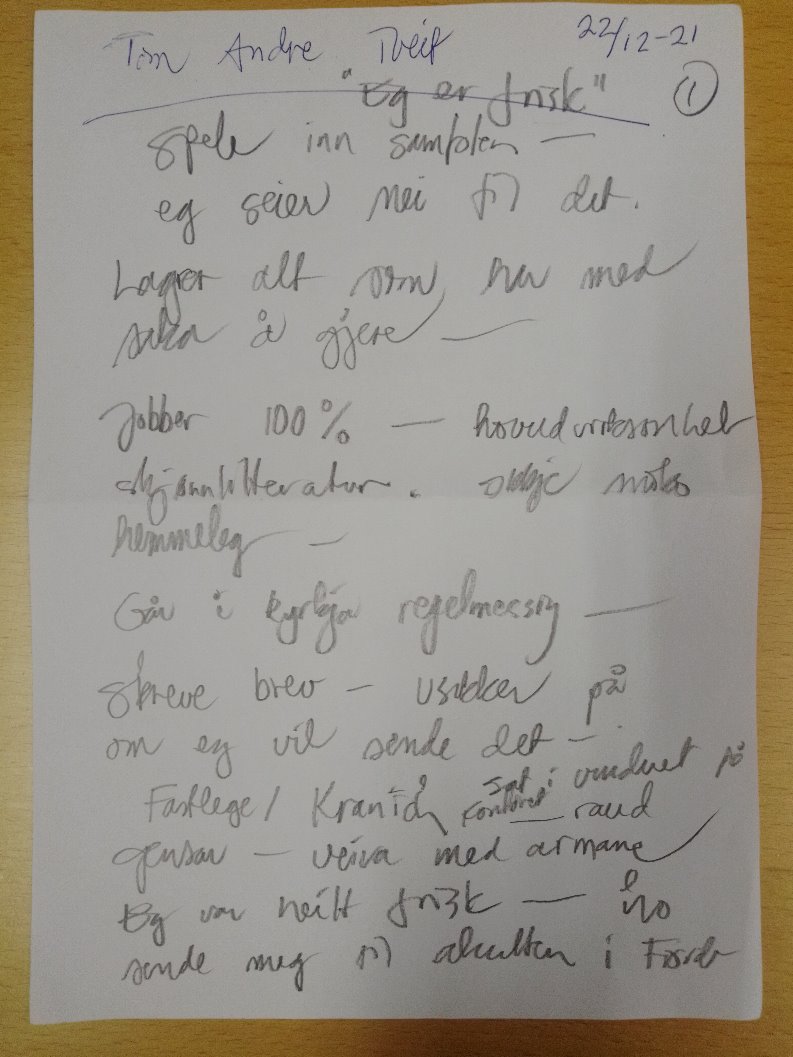 Tom Andre Tveit 22/12-21
"Eg er frisk" 1
Spele inn samtalen —
eg seier nei til det.
Lagrer alt som har med
saka å gjere —
Jobber 100% — hovudverksomhet
skjønnlitteratur. Ikkje noko
hemmeleg —
Går i kyrkja regelmessig —
Skreve brev — usikker på
om eg vil sende det —
Fastlege / sat i vinduet på
kontoret — raud
genser — veiva med armane
Eg var heilt frisk —
sende meg til akutten i Førde